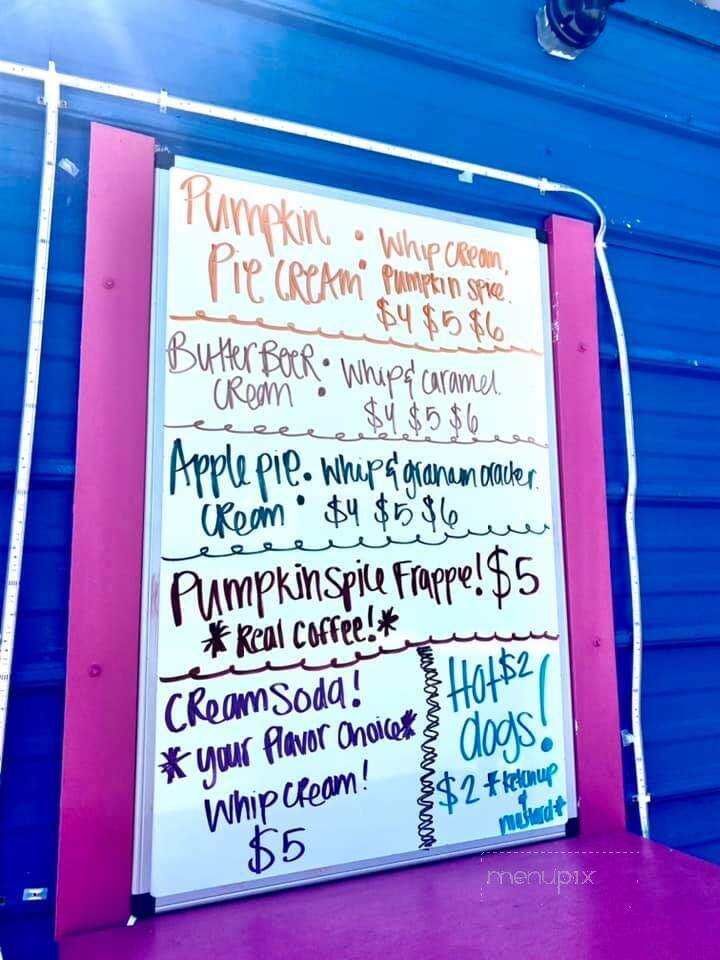 Pumpkin • Whip Cream,
Pie Cream • Pumpkin spice.
$4 $5 $6
Butter Beer • Whip & caramel.
Cream •
$4 $5 $6
Apple pie • Whip & graham cracker.
Cream • $4 $5 $6
Pumpkin Spice Frappe! $5
*Real Coffee!*
Cream Soda!
*your flavor Choice*
Whip Cream!
$5
Hot $2
dogs!
$2 *ketchup
&
mustard*
menupix